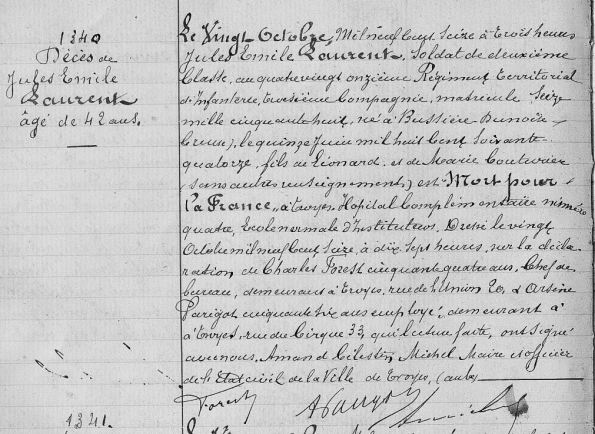 1340
Décès de
Jules Emile
Laurent
âgé de 42 ans.
Le Vingt Octobre, Mil neuf Cent Seize à Trois heures
Jules Emile Laurent, Soldat de deuxième
Classe, au quatrevingt onzième Régiment Territorial
d'Infanterie, troisième Compagnie, matricule Seize
mille cinquante huit, né à Bussière Dunoise
Creuse), le quinze Juin mil huit Cent Soixante
quatorze, fils de Léonard et de Marie Couturier
(sans autres renseignements) est Mort pour
la France, à Troyes Hopital Complémentaire numéro
quatre, Ecole normale d'Instituteurs, Dressé le vingt
Octobre mil neuf Cent Seize, à dix sept heures, sur la décla
ration de Charles Forest cinquante quatre ans, Chef de
bureau, demeurant à Troyes, rue de l'Union 20, & Arsène
Parigot cinquante ans employé, demeurant à
à Troyes, rue du Cirque 33, qui lecture faite, ont signé
avec nous, Amand Célestin Michel Maire & officier
de l'Etat civil de la Ville de Troyes, (aube)
Forest
1341.